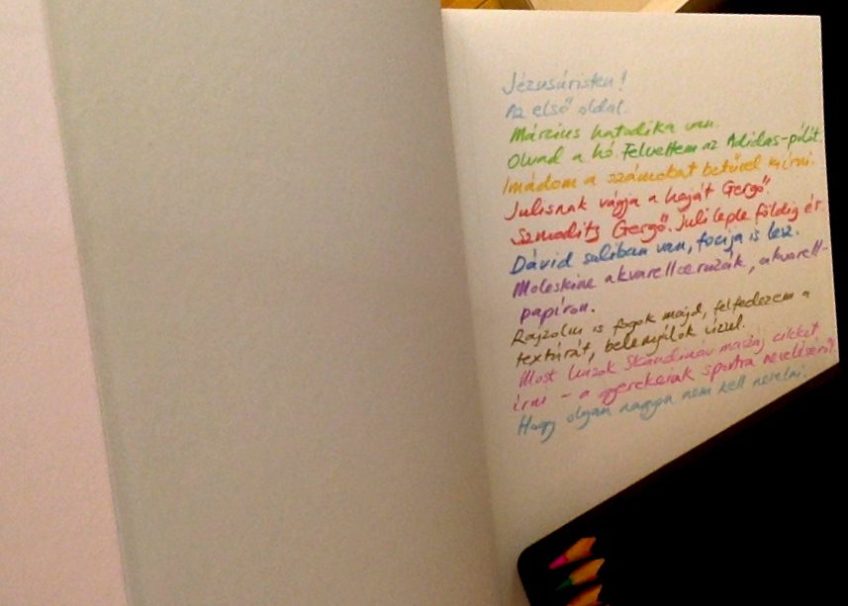 Jézusúristen!
Az első oldal.
Március hatodika van.
Olvad a hó. Felvettem az Adidas-pólót.
Imádom a számokat betűvel kiírni.
Julisnak vágja a haját Gergő.
Szmodits Gergő. Juli leple földig ér.
Dávid suliban van, focija is lesz.
Moleskine akvarellceruzák, akvarell-
papíron.
Rajzolni is fogok majd, felfedezem a
textúrát, belenyúlok vízzel.
Most húzok Skandináv maszáj cikket
írni – a gyerekeink sportra neveléséről.
Hogy olyan nagyon nem kell nevelni.